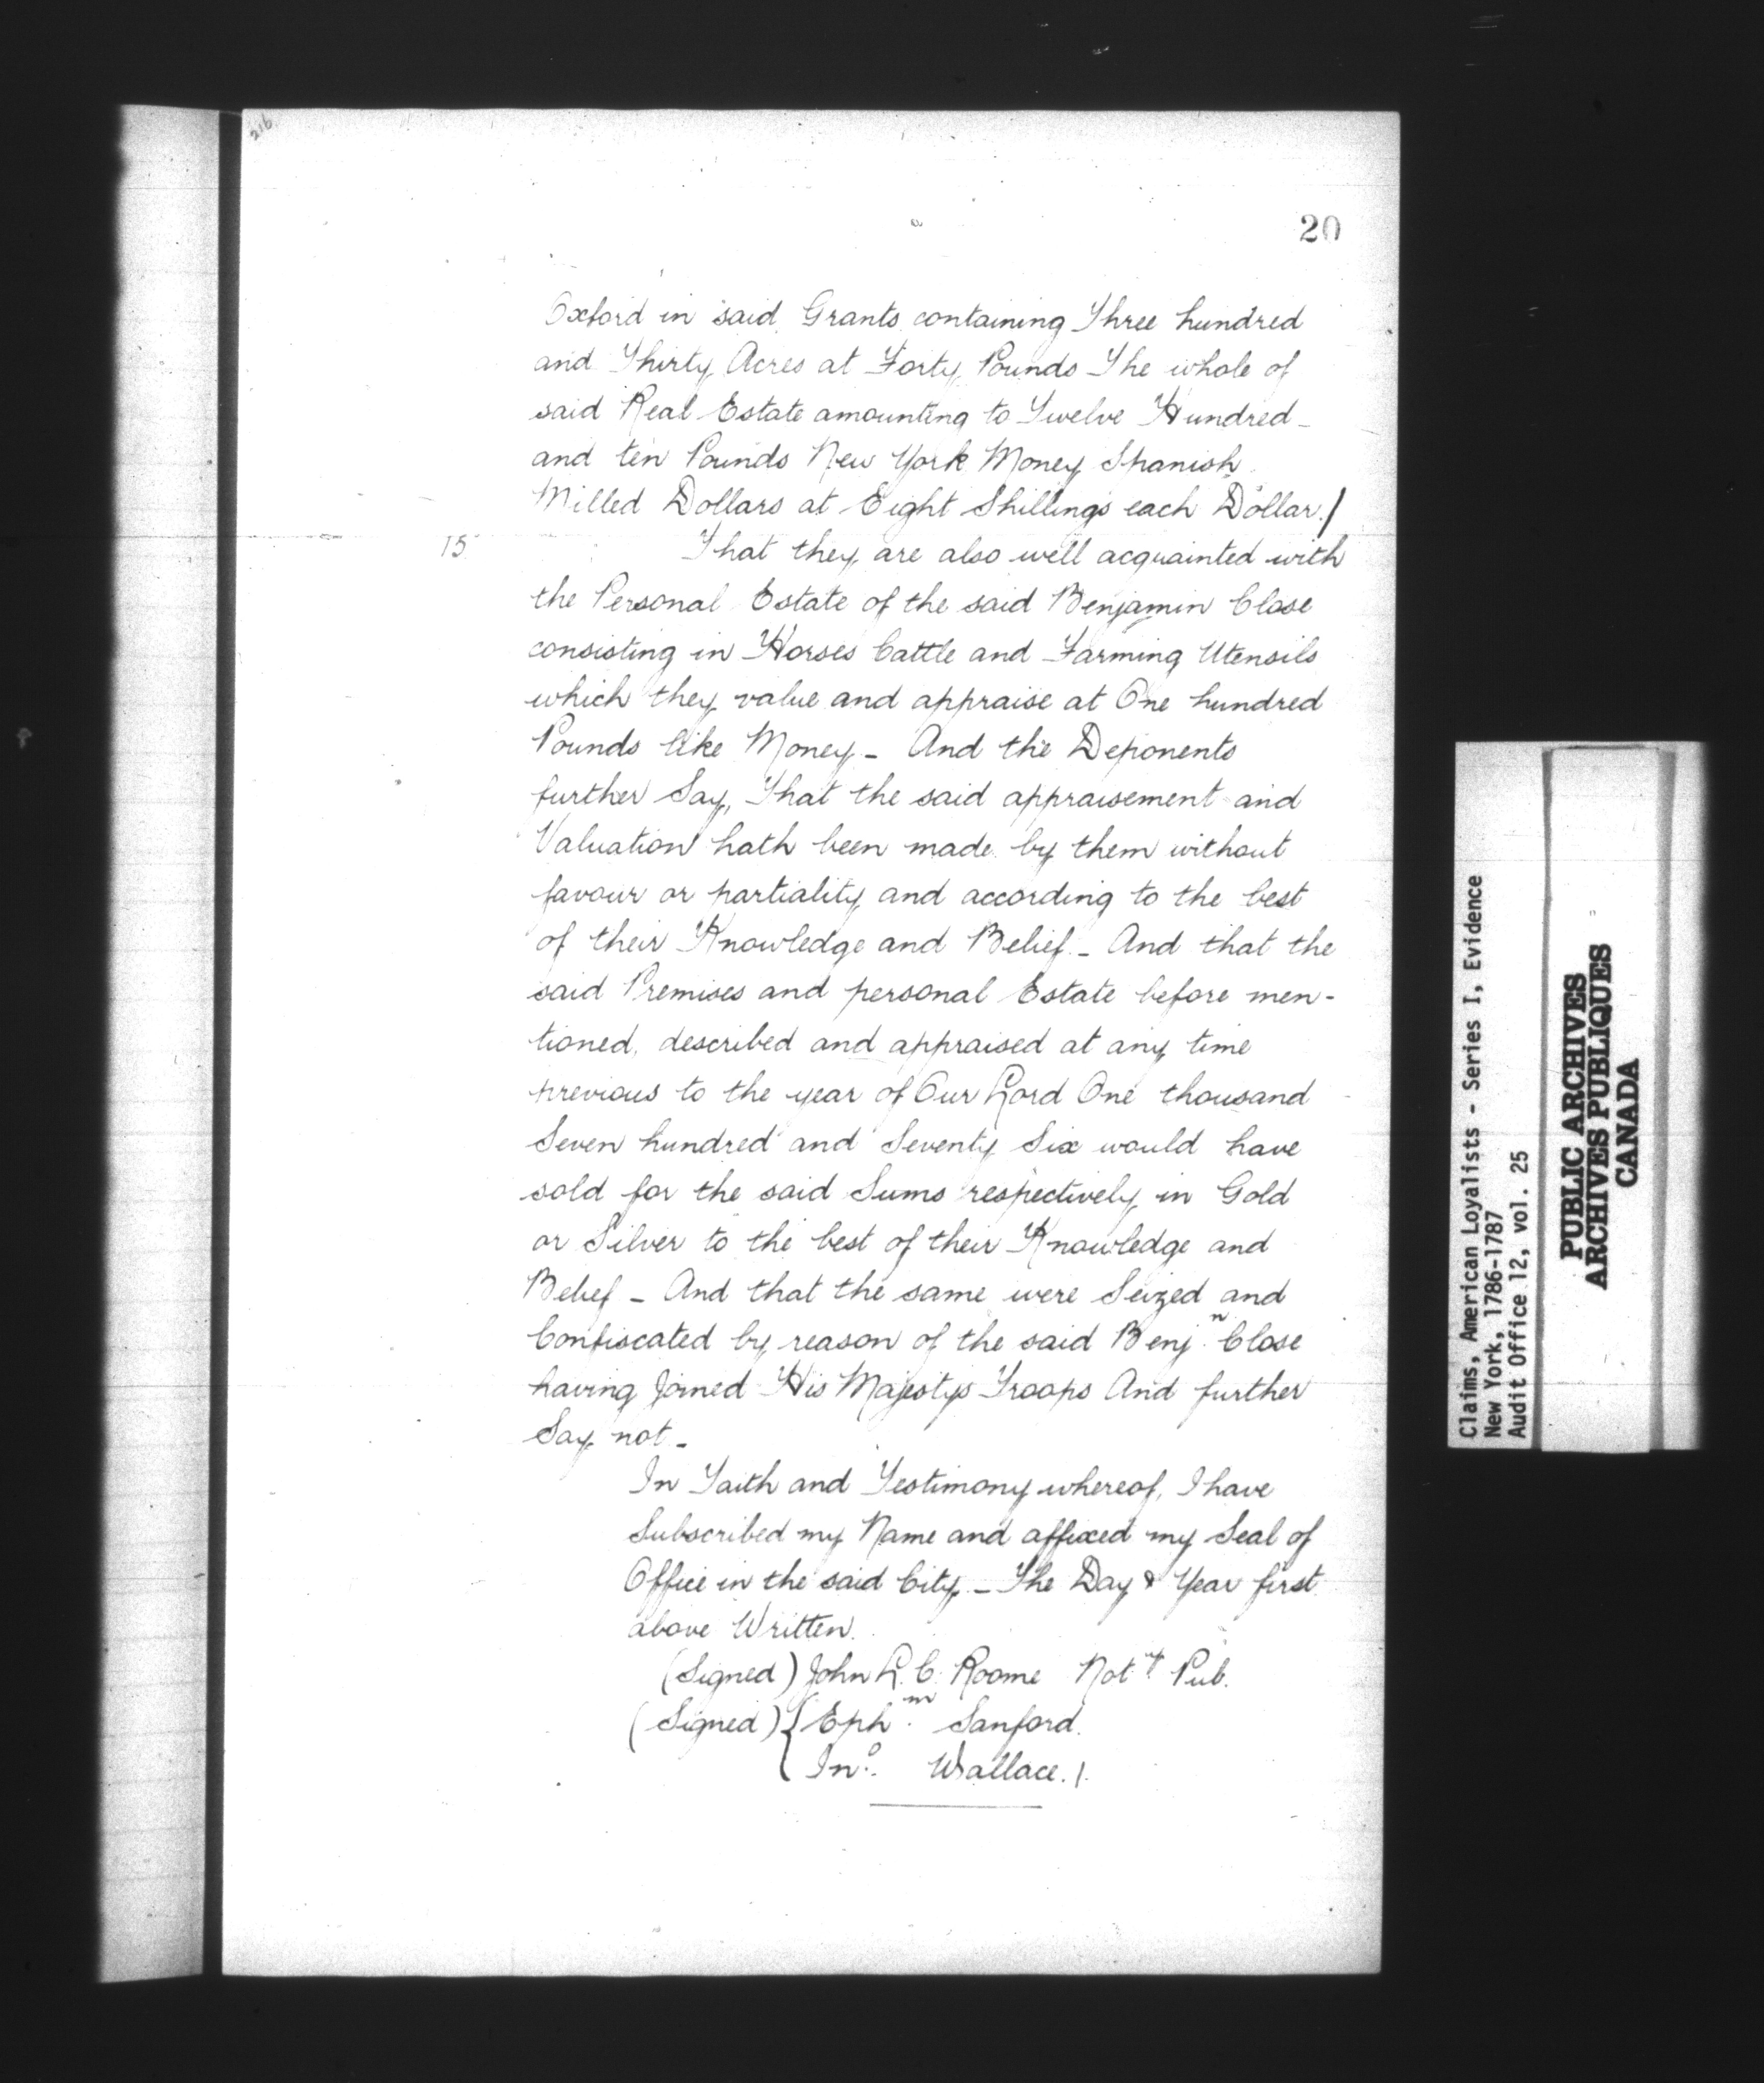 216
20
Oxford in said Grants containing Three hundred
and Thirty Acres at Forty Pounds The whole of
said Real Estate amounting to Twelve Hundred -
and ten Pounds New York Money Spanish
Milled Dollars at Eight Shillings each Dollar./
15 That they are also well acquainted with
the Personal Estate of the said Benjamin Close
consisting in Horses Cattle and Farming Utensils
which they value and appraise at One hundred
Pounds like Money - And the Deponents
further Say, That the said appraisement and
Valuation hath been made by them without
favour or partiality and according to the best
of their Knowledge and Belief. - And that the
said Premises and personal Estate before men-
tioned, described and appraised at any time
previous to the year of Our Lord One thousand
Seven hundred and Seventy Six would have
sold for the said Sums respectively in Gold
or Silver to the best of their Knowledge and
Belief - And that the same were Seized and
Confiscated by reason of the said Benjn. Close
having Joined His Majestys Troops And further
Say not -
In Faith and Testimony whereof, I have
Subscribed my Name and affixed my Seal of
Office in the said City - The Day & Year first
above Written.
(Signed) John L. C. Roome Noty. Pub.
(Signed) { Ephm. Sanford.
Jno. Wallace. /.
Claims, American Loyalists - Series I, Evidence
New York, 1786-1787
Audit Office 12, vol. 25
PUBLIC ARCHIVES
ARCHIVES PUBLIQUES
CANADA